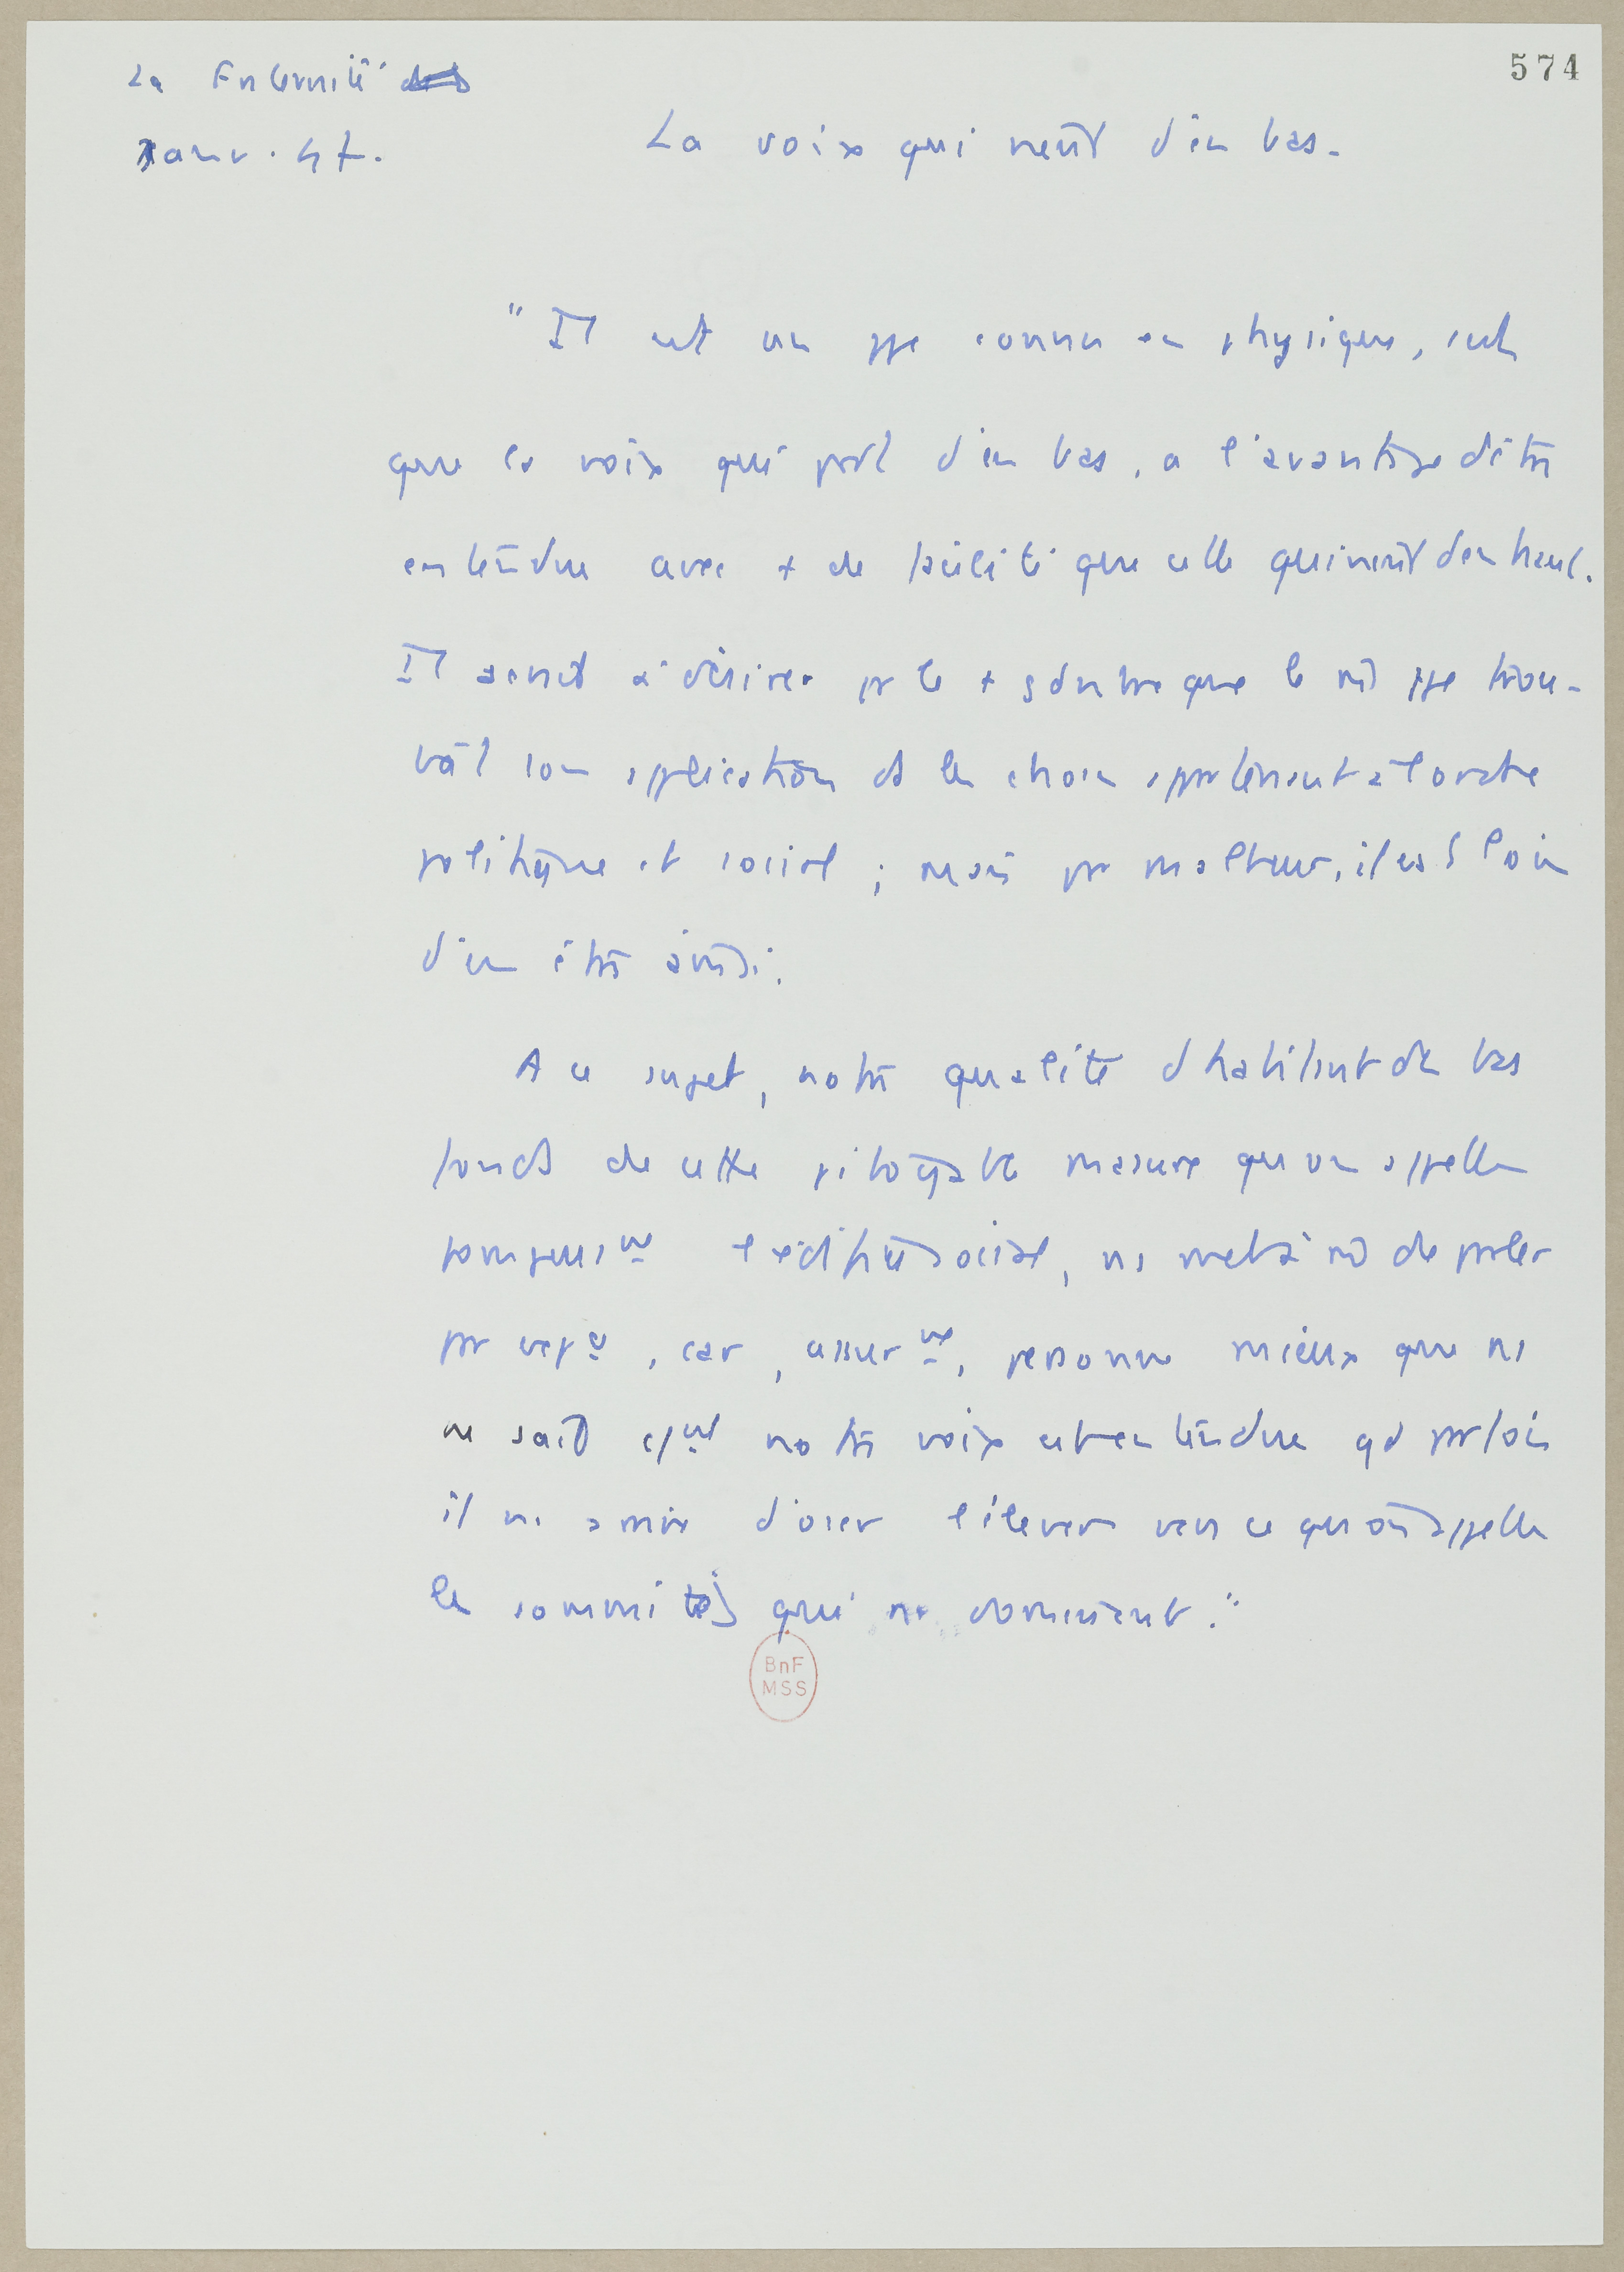 574
La Fraternité
Janv. 47.
La voix qui vient d'en bas.
"Il est un ppe connu en physique, c'est
que la voix qui part d'en bas, a l'avantage d'être
entendue avec + de facilité que celle qui vient d'en haut.
Il serait à désirer pr le + gd nbre que le m̂ ppe trou-
vât son application ds les choses appartenant à l'ordre
politique et social ; mais pr malheur, il est loin
d'en être ainsi.
A ce sujet, notre qualité d'habitant des bas
fonds de cette pitoyable masure qu'on appelle
pompeusᵐᵉ l'édifice social, ns met à m̂ de parler
par expᶜᵉ, car, assurᵐᵉ, personne mieux que ns
ne sait notre voix est entendue qd parfois
il ns arrive d'oser l'élever vers ce qu'on appelle
les sommités qui ns dominent."
BnF
MSS